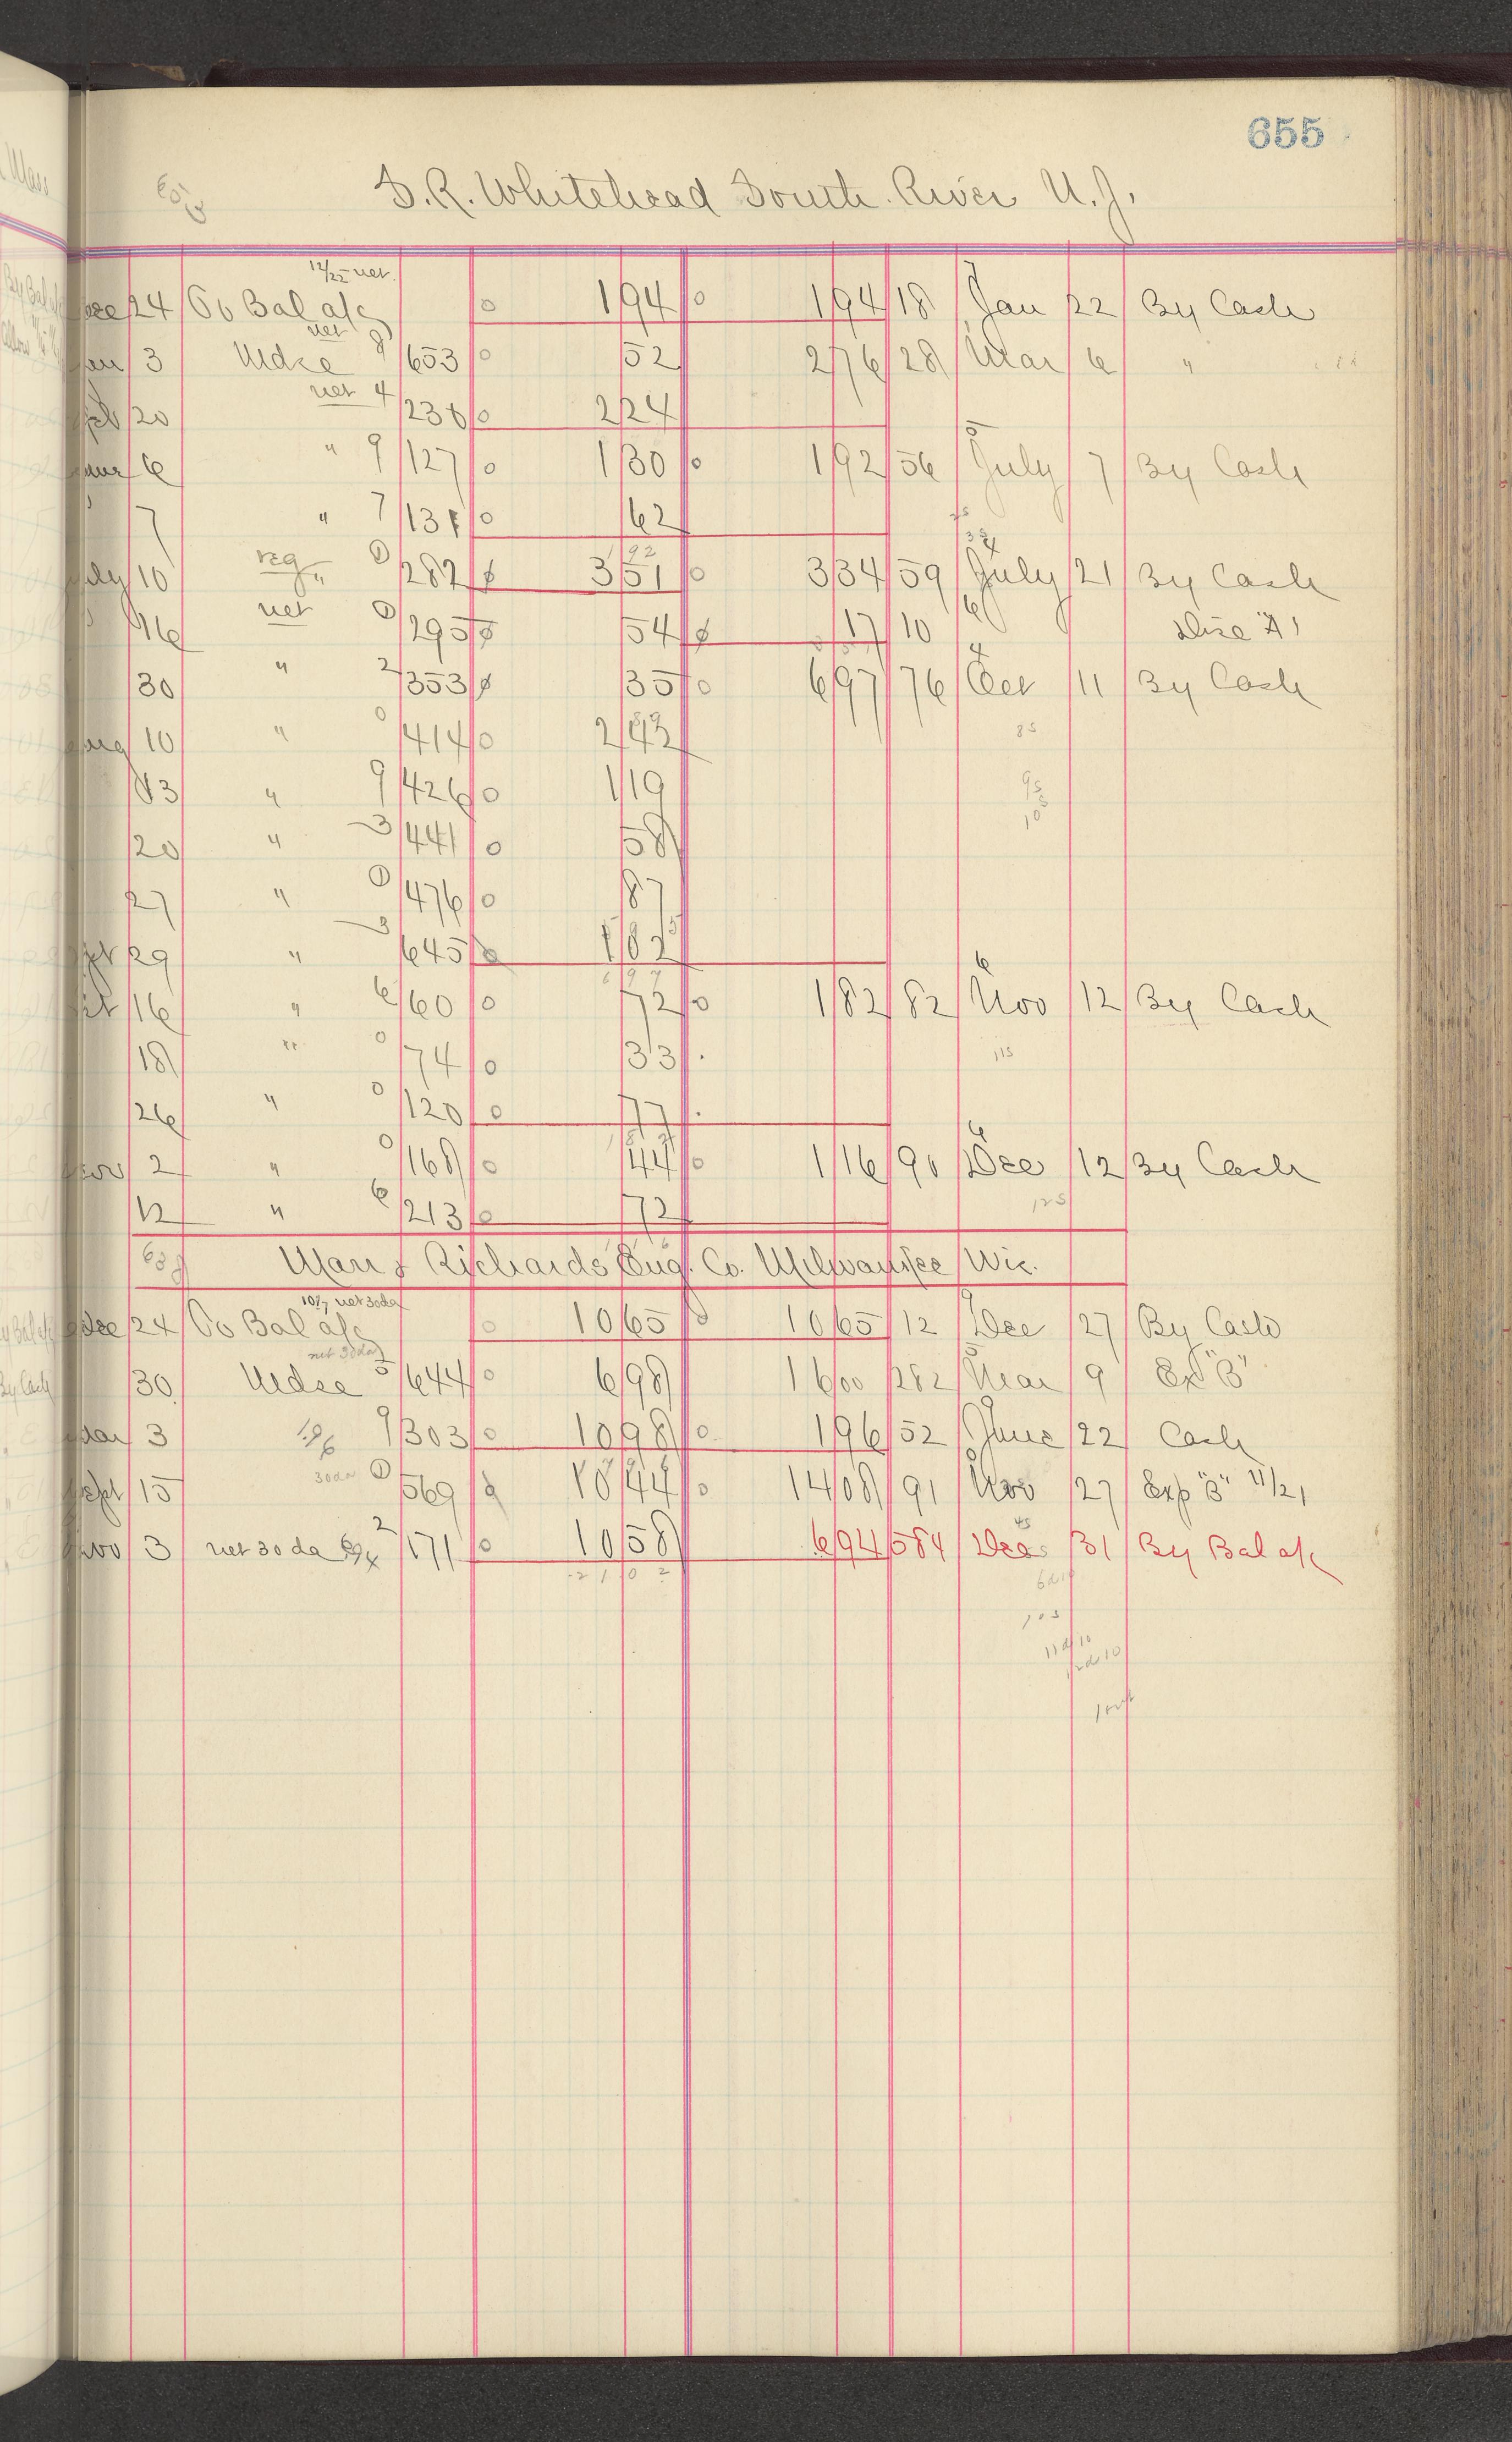 655
S. R. Whitehead South River N. J.
12/22 net
Dec 24 To Bal a/c 0 194 0 194 18 Jan 22 By Cash
net
Jan 3 Mdse 8 653 0 52 276 28 Mar 6 "
net 4
Feb 20 238 0 224
6 " 9 127 0 130 0 192 56 July 7 By Cash
7 " 7 131 0 62
192
July 10 reg " 1 282 351 0 334 59 July 21 By Cash
16 net 1 295 54 17 10 Disc "A"
30 " 2 353 35 0 697 76 Oct 11 By Cash
Aug 10 " 0 414 0 242
13 " 9 426 0 119
20 " 3 441 0 58
27 " 1 476 0 87
Sept 29 " 3 645
697
Oct 16 " 6 60 0 72 0 182 82 Nov 12 By Cash
18 " 0 74 0 33
26 " 0 120 0 77
Nov 2 " 0 168 0 44 0 116 90 Dec 12 By Cash
12 " 6 213 0 72
Marr & Richards Eng. Co. Milwaukee Wis.
10/7 net 30 da
Dec 24 To Bal a/c 0 1065 0 1065 12 Dec 27 By Cash
net 30 da
30 Mdse 5 644 0 698 1600 282 Mar 9 Ex "B"
Mar 3 9 303 0 1098 0 196 52 June 22 Cash
30 da
Sept 15 1 569 1044 0 1408 91 Nov 27 Exp "B" 11/21
Nov 3 net 30 da 2 171 0 1058 694 584 Dec 31 By Bal a/c
2102